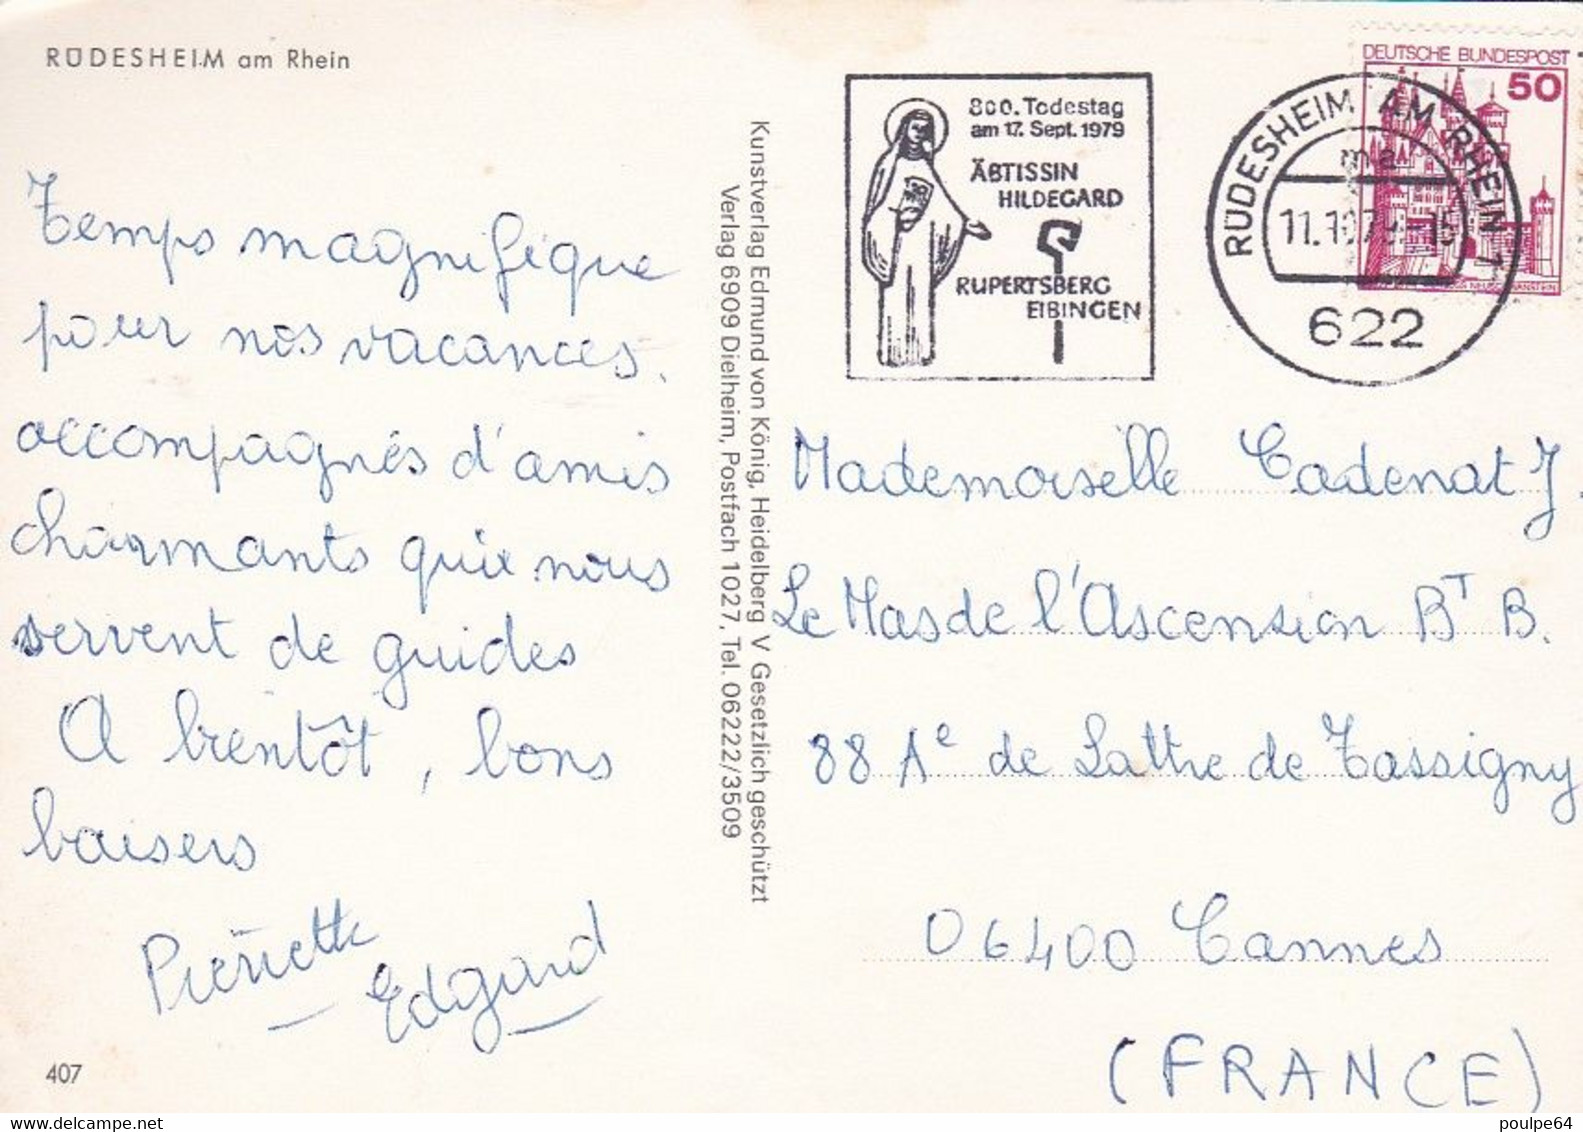 RÜDESHEIM am Rhein
Temps magnifique
pour nos vacances.
accompagnés d'amis
charmants qui nous
servent de guides
A bientôt, bons
baisers
Pierrette
Edgard
407
Kunstverlag Edmund von König, Heidelberg V Gesetzlich geschützt
Verlag 6909 Dielheim, Postfach 1027, Tel. 06222/3509
800. Todestag
am 17. Sept. 1979
ÄBTISSIN
HILDEGARD
RUPERTSBERG
EIBINGEN
RÜDESHEIM AM RHEIN 1
ma
11.10.79-15
622
DEUTSCHE BUNDESPOST
50
Mademoiselle Cadenat J.
Le Mas de l'Ascension Bᵗ B.
88 Aᵉ de Lattre de Tassigny
06400 Cannes
(FRANCE)
poulpe64